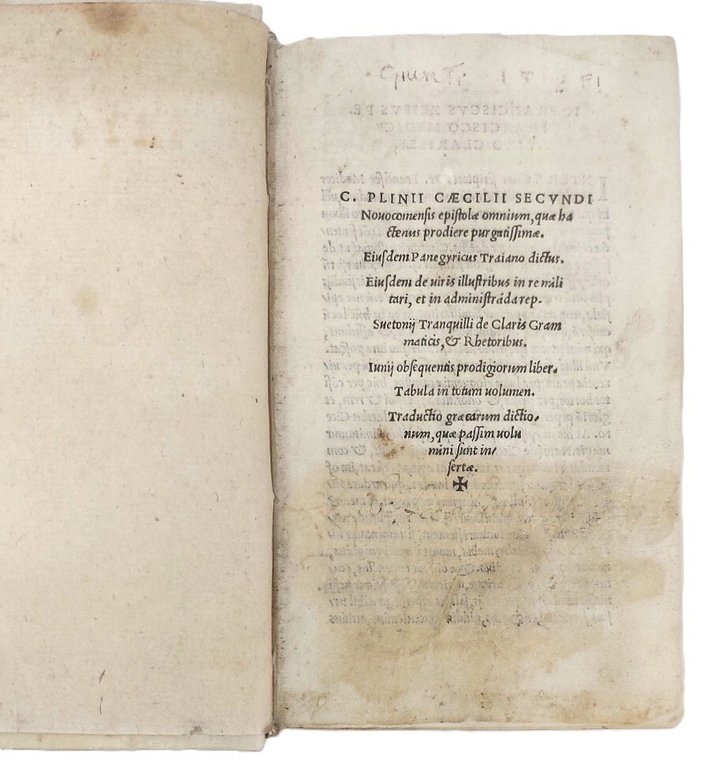 Giunti
C. PLINII CÆCILII SECVNDI
Nouocomensis epistolæ omnium, quæ ha
ctenus prodiere purgatissimæ.
Eiusdem Panegyricus Traiano dictus.
Eiusdem de uiris illustribus in re mili
tari, et in administrãda rep.
Suetonij Tranquilli de Claris Gram
maticis, & Rhetoribus.
Iunij obsequentis prodigiorum liber.
Tabula in totum uolumen.
Traductio græcarum dictio⸗
num, quæ passim uolu
mini sunt in/
sertæ.